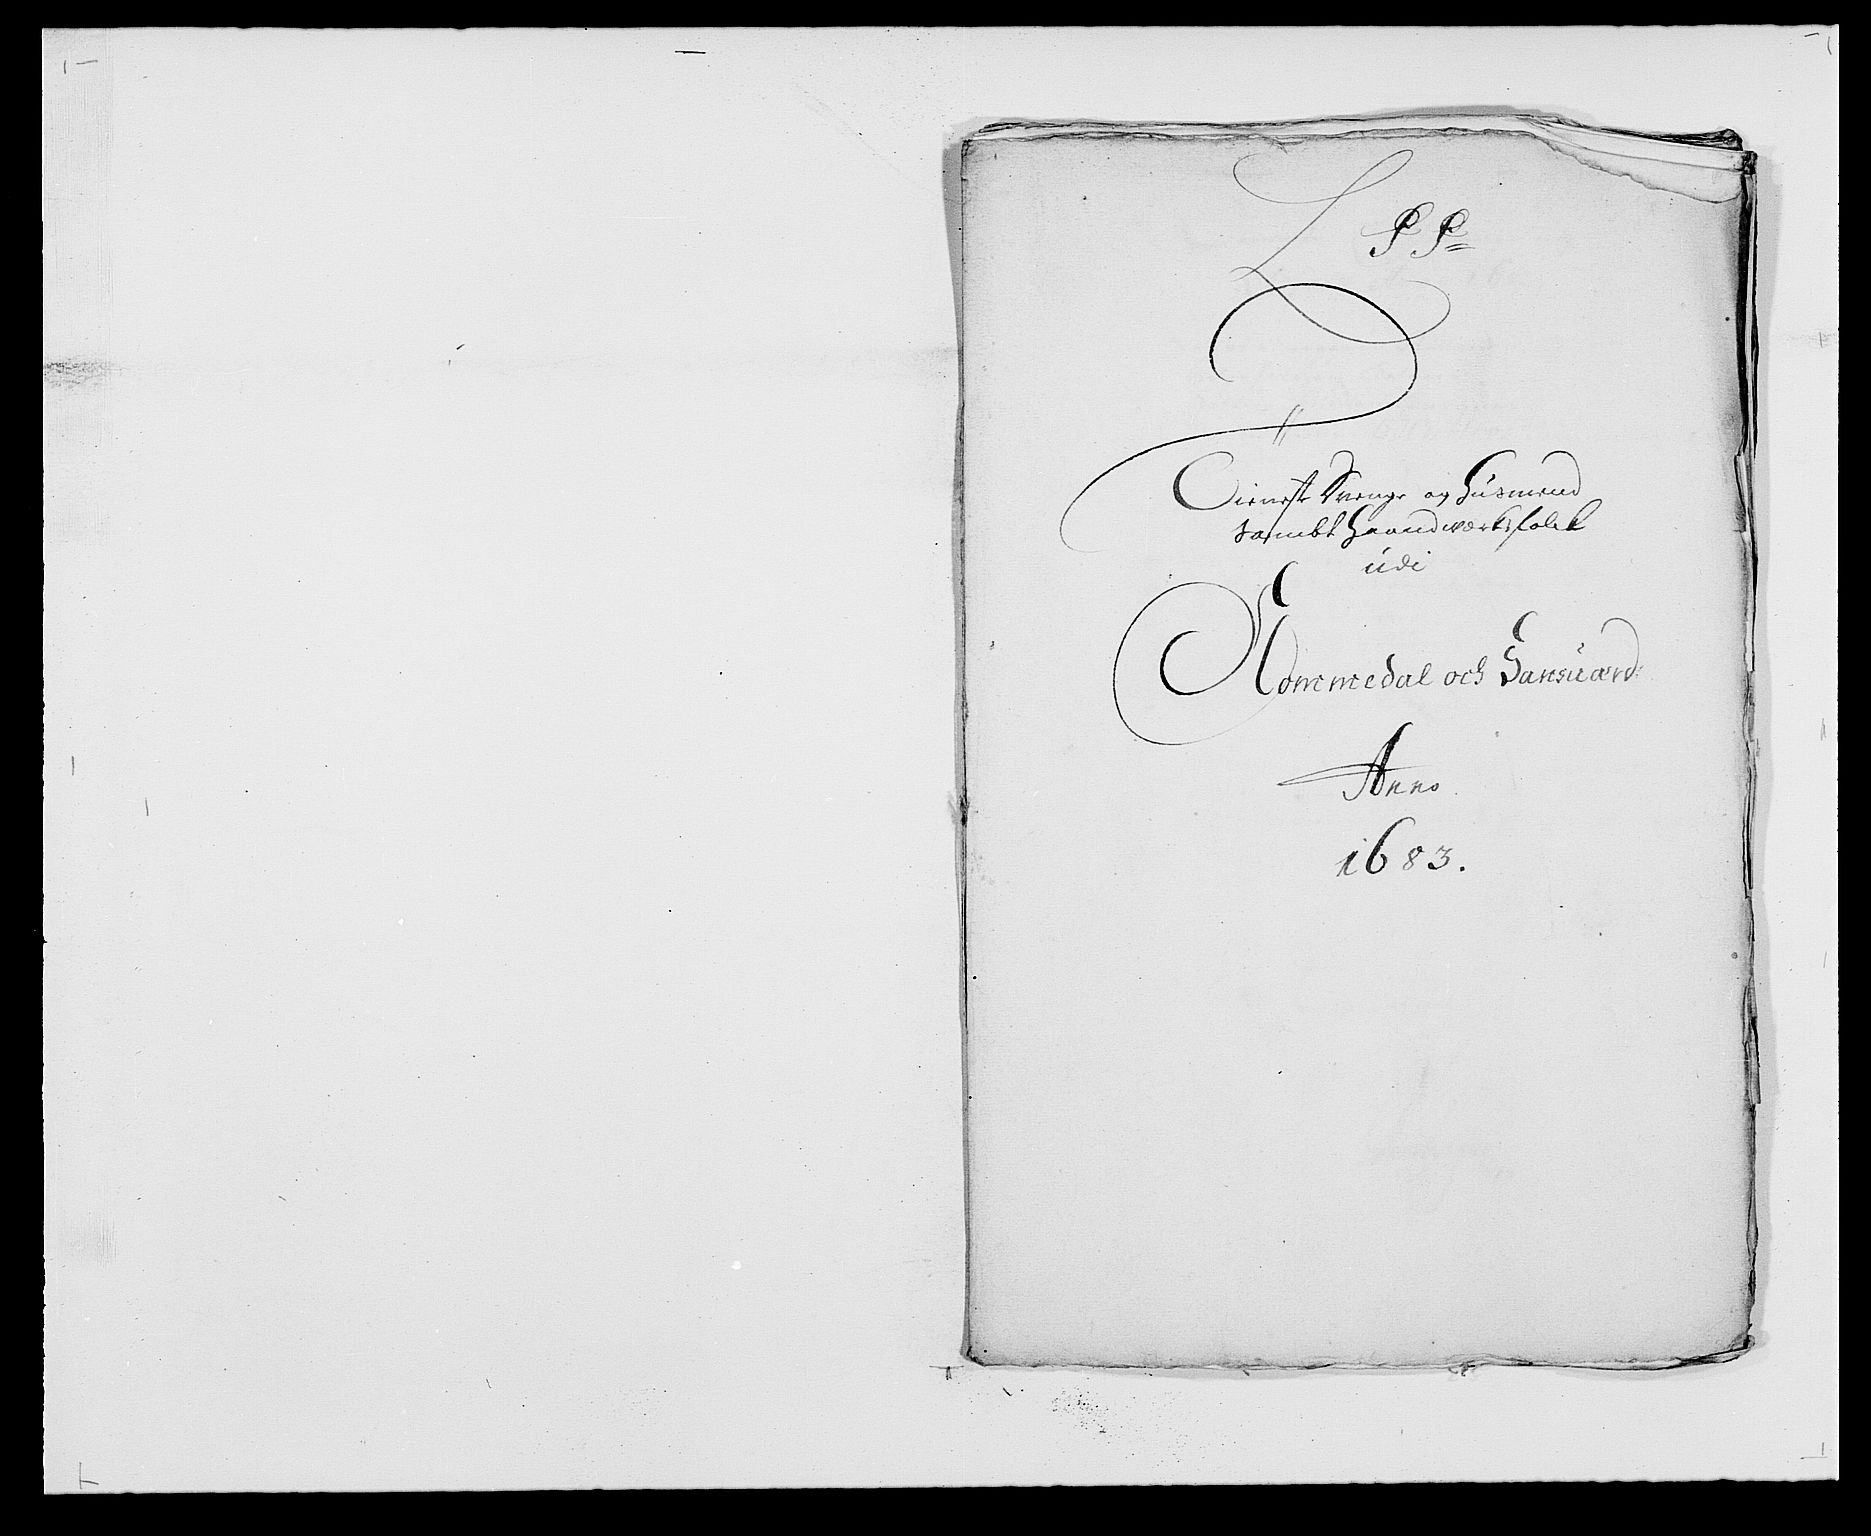 L PP
Tieneste Drenge og Husmend
sambt Haandwerksfolck
udi
Nommedal och Sansuærd
Anno
1683.